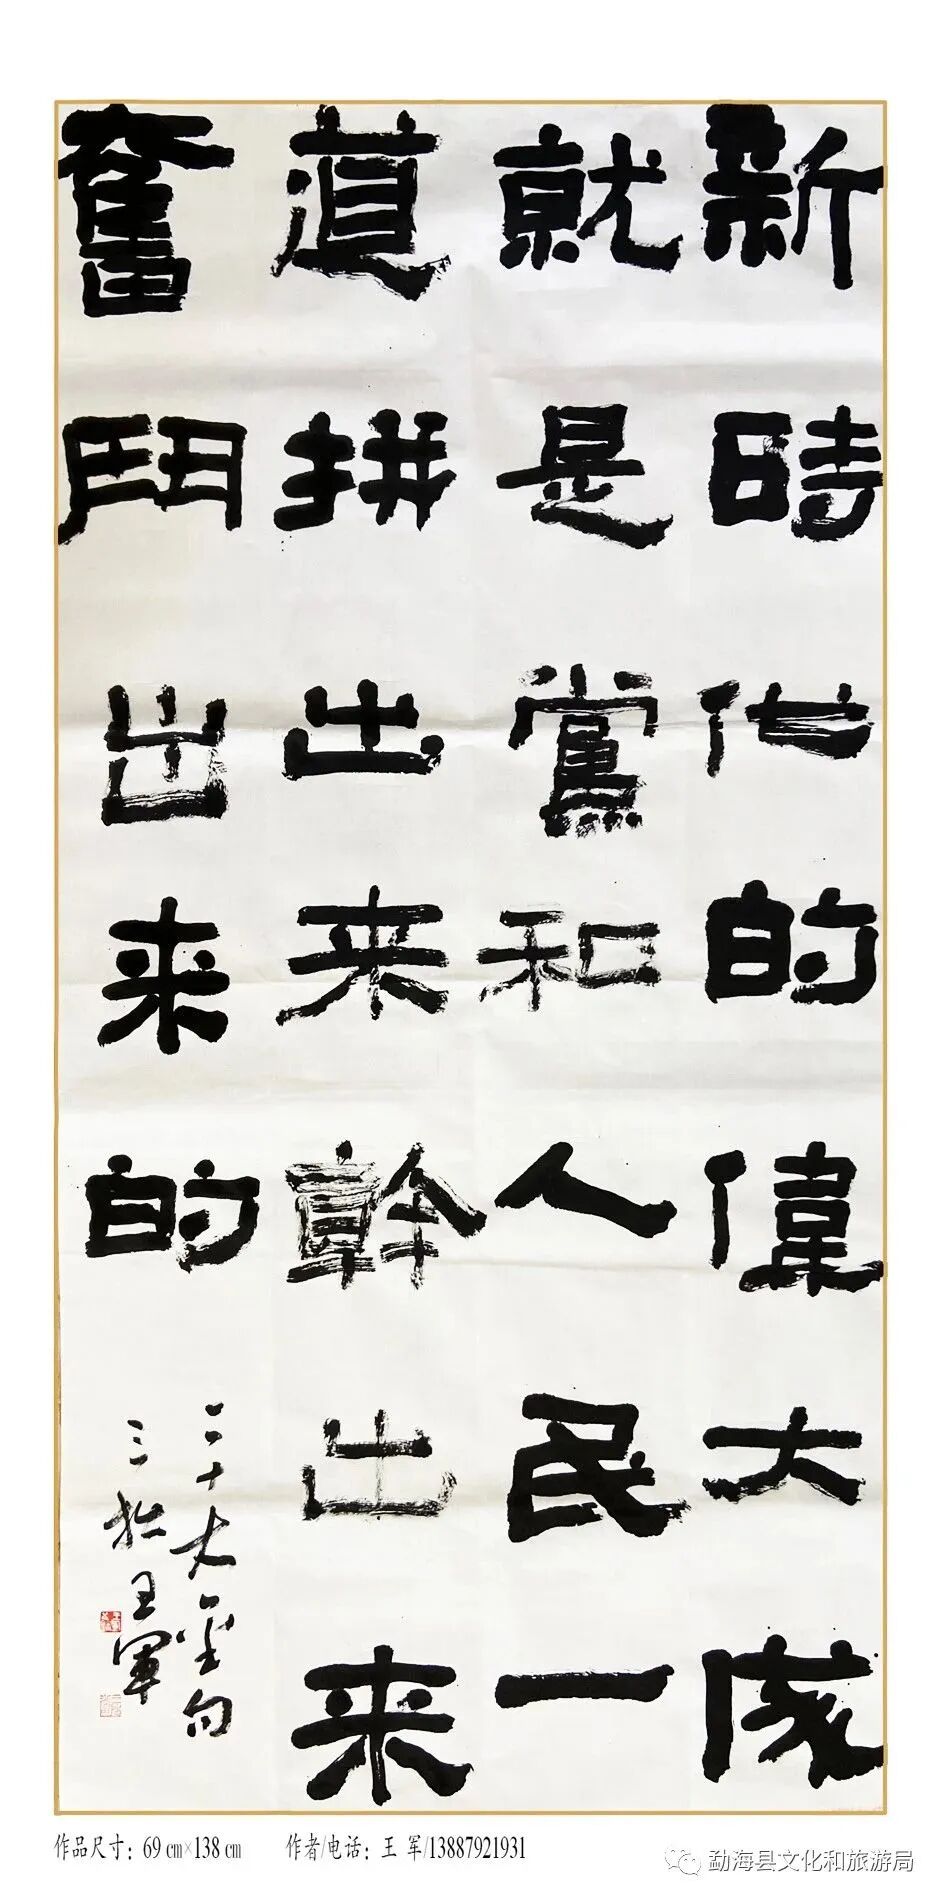 新時代的偉大成
就是黨和人民一
道拼出来幹出来
奮鬥出来的
二十大金句
三拙王军
作品尺寸：69 cm×138 cm 作者/电话：王 军/13887921931
勐海县文化和旅游局